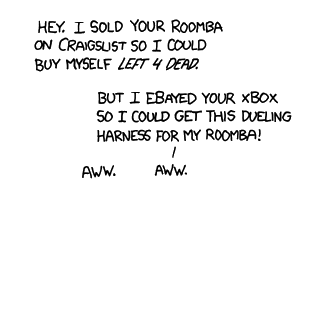 HEY. I SOLD YOUR ROOMBA
ON CRAIGSLIST SO I COULD
BUY MYSELF LEFT 4 DEAD.
BUT I EBAYED YOUR XBOX
SO I COULD GET THIS DUELING
HARNESS FOR MY ROOMBA!
AWW. AWW.